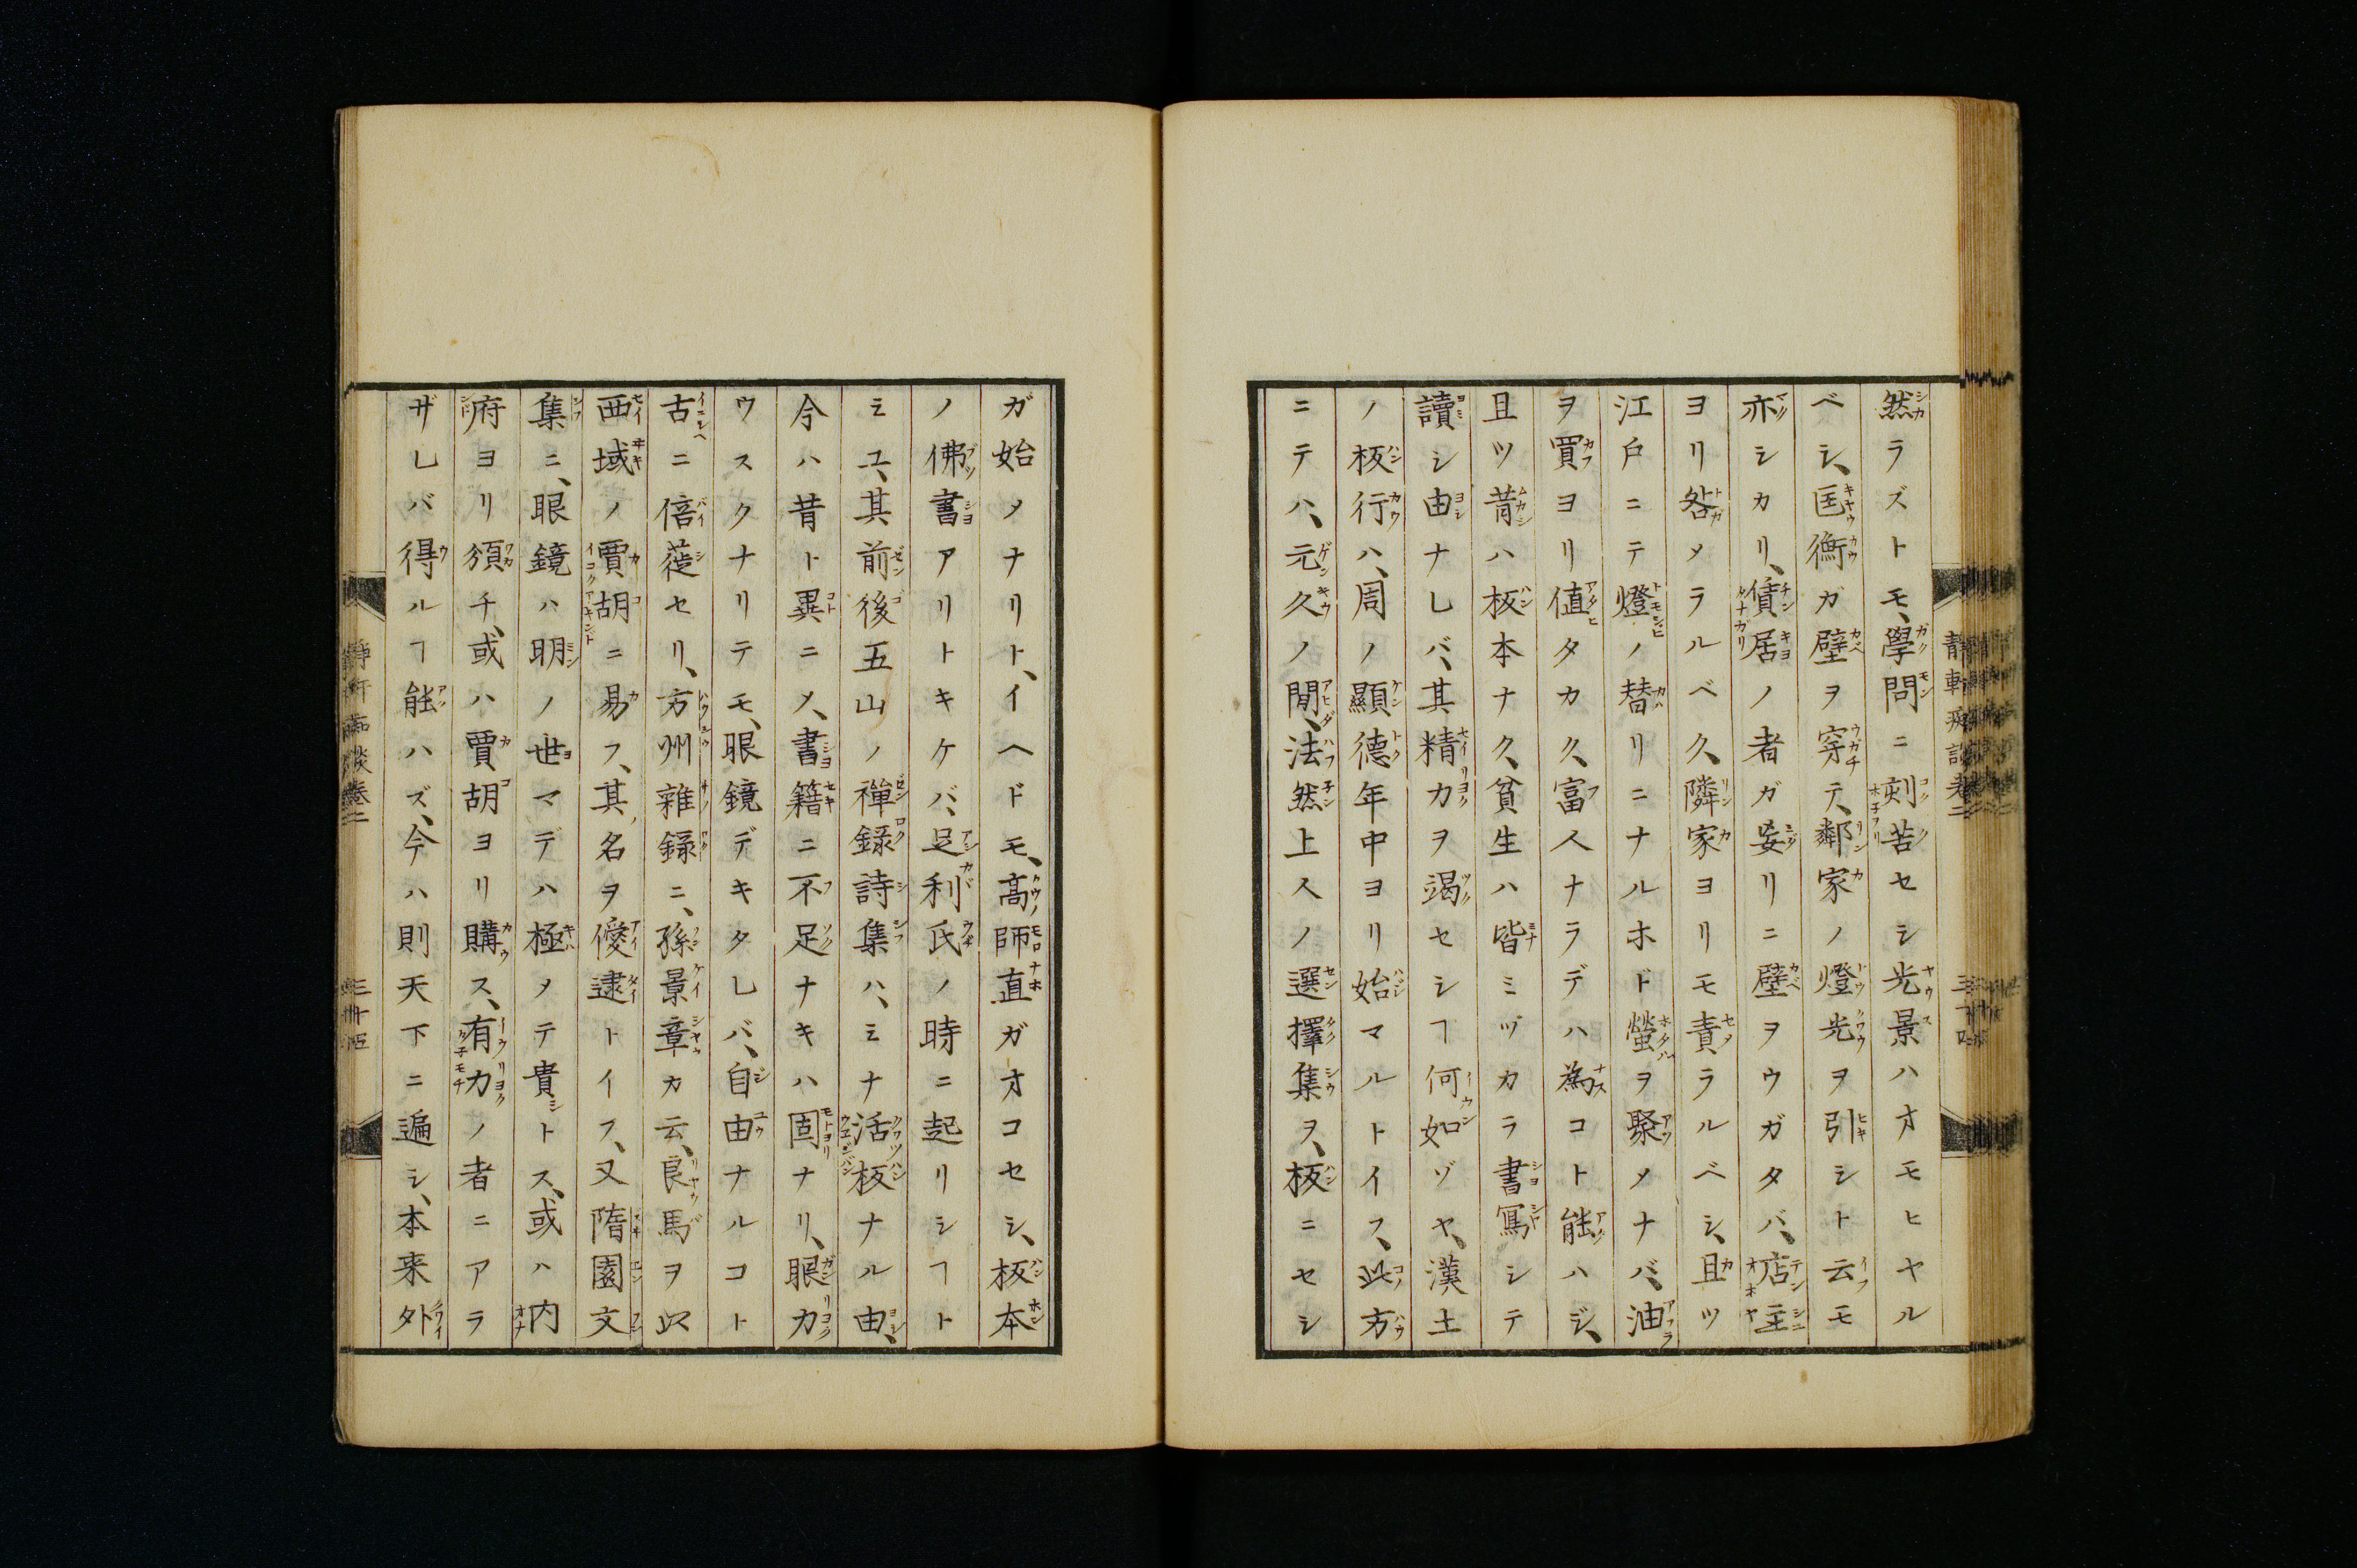 然ラズトモ、學問ニ刻苦セシ光景ハオモヒヤル
ベシ、匡衡ガ壁ヲ穿テ、鄰家ノ燈光ヲ引シト云モ
亦シカリ、賃居ノ者ガ妄リニ壁ヲウガタバ、店主
ヨリ咎メラルベク、隣家ヨリモ責ラルベシ、且ツ
江戸ニテ燈ノ替リニナルホド螢ヲ聚メナバ、油
ヲ買ヨリ値タカク、富人ナラデハ為コト能ハジ、
且ツ昔ハ板本ナク、貧生ハ皆ミヅカラ書寫シテ
讀シ由ナレバ、其精力ヲ竭セシヿ何如ゾヤ、漢土
ノ板行ハ、周ノ顯德年中ヨリ始マルトイフ、此方
ニテハ、元久ノ間、法然上人ノ選擇集ヲ、板ニセシ
ガ始メナリト、イヘドモ、高師直ガオコセシ、板本
ノ佛書アリトキケバ、足利氏ノ時ニ起リシヿト
ミユ、其前後五山ノ禪錄詩集ハ、ミナ活板ナル由、
今ハ昔ト異ニメ、書籍ニ不足ナキハ固ナリ、眼力
ウスクナリテモ、眼鏡デキタレバ、自由ナルコト
古ニ倍蓰セリ、方州雜錄ニ、孫景章カ云、良馬ヲ以
西域ノ賈胡ニ易フ、其名ヲ僾逮トイフ、又隋園文
集ニ、眼鏡ハ明ノ世マデハ極メテ貴シトス、或ハ内
府ヨリ頒チ、或ハ賈胡ヨリ購ス、有力ノ者ニアラ
ザレバ得ルヿ能ハズ、今ハ則天下ニ遍シ、本来外